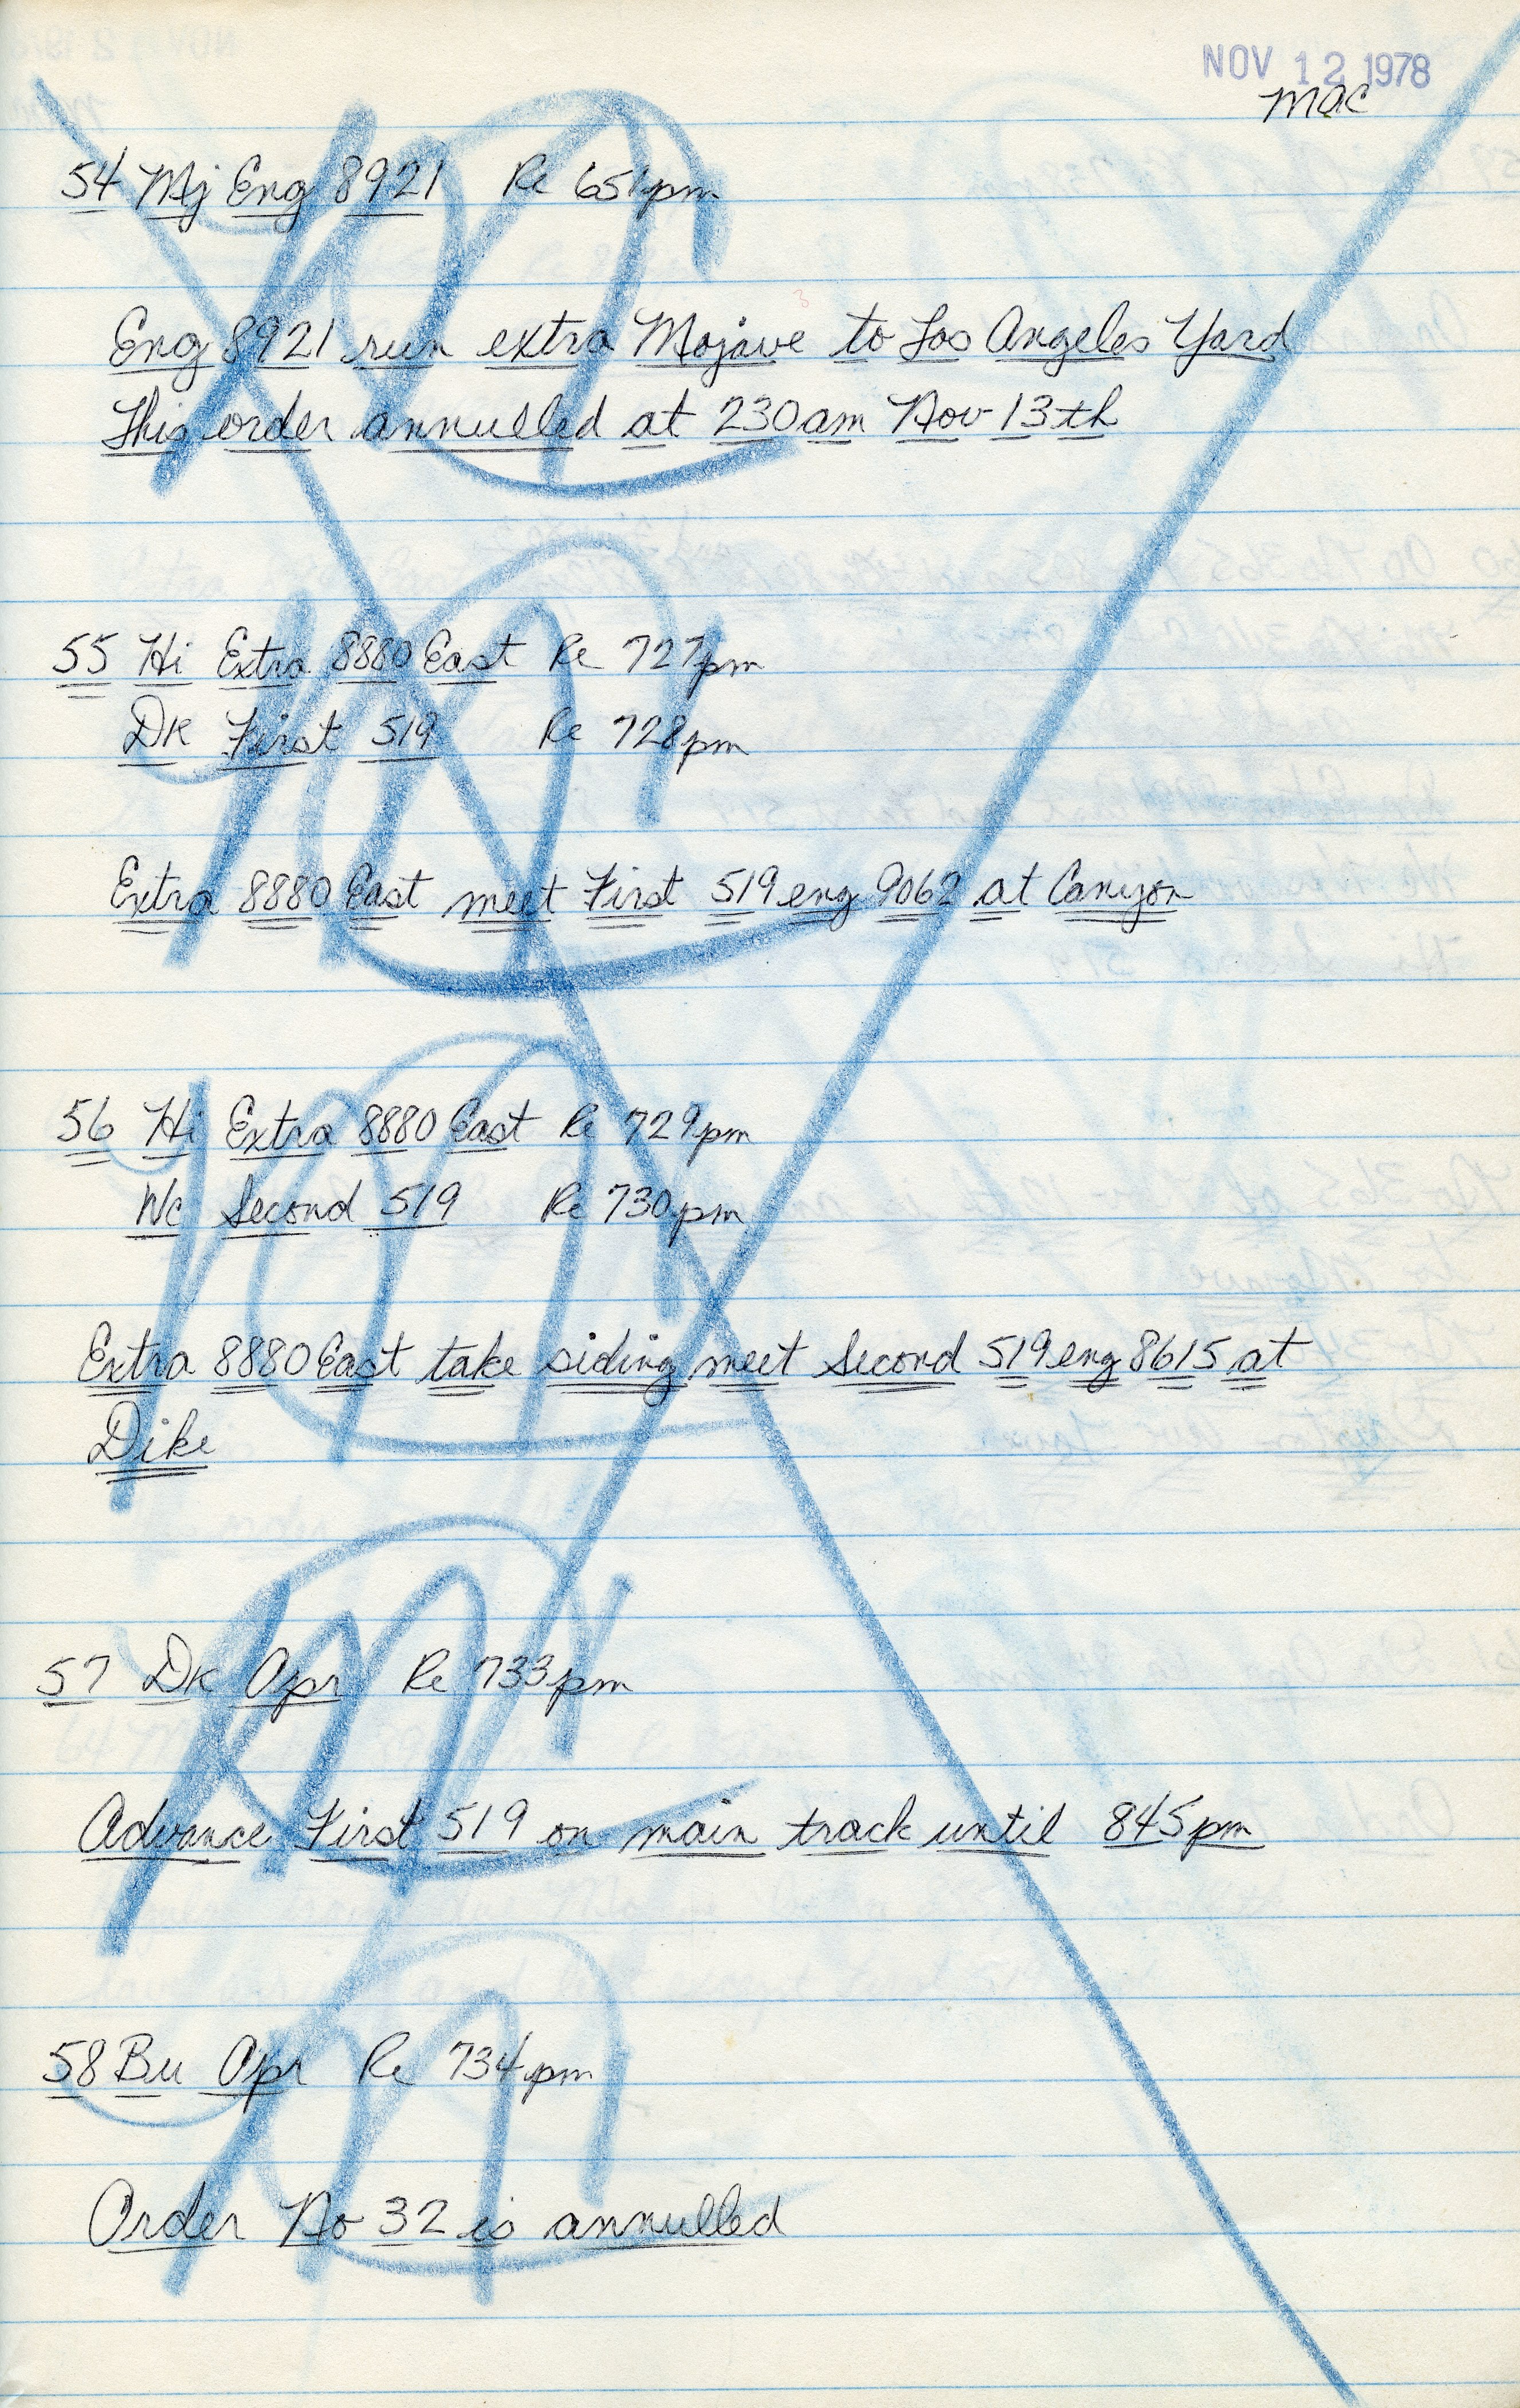 NOV 12 1978
mac
54 Mj Eng 8921 Re 651pm
Eng 8921 run extra Mojave to Los Angeles Yard
This order annulled at 230am Nov 13th
55 Hi Extra 8880 East Re 727pm
DK First 519 Re 728pm
Extra 8880 East meet First 519 eng 9062 at Canyon
56 Hi Extra 8880 East Re 729pm
Wc Second 519 Re 730pm
Extra 8880 East take siding meet Second 519 eng 8615 at
Dike
57 DK Opr Re 733pm
Advance First 519 on main track until 845pm
58 Bu Opr Re 734pm
Order No 32 is annulled